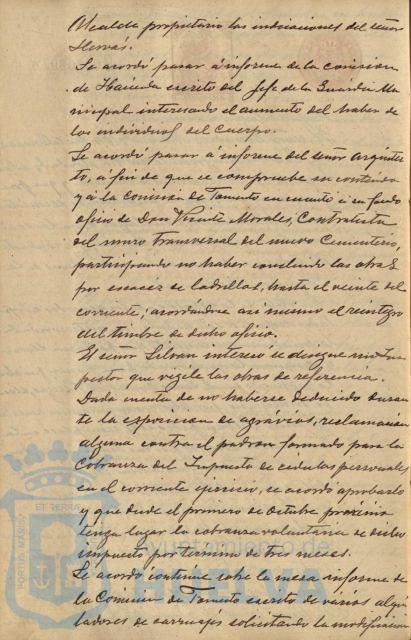 Alcalde propietario las indicaciones del señor
Hervás.
Se acordó pasar á informe de la comision
de Hacienda escrito del Jefe de la Guardia Mu
nicipal interesando el aumento del haber de
los individuos del Cuerpo.
Se acordó pasar á informe del señor Arquitec
to, á fin de que se compruebe su contenido
y á la Comision de Fomento en cuanto á su fondo
oficio de Don Vicente Morales, Contratista
del muro transversal del nuevo Cementerio,
participando no haber concluido las obras
por escacez de ladrillos, hasta el veinte del
corriente; acordándose asi mismo el reintegro
del timbre de dicho oficio.
El señor Silvan interesó se designe un Ins
pector que vigile las obras de referencia.
Dada cuenta de no haberse deducido duran
te la exposicion de agrávios, reclamacion
alguna contra el padron formado para la
Cobranza del Impuesto de cedulas personales
en el corriente ejercicio, se acordó aprobarlo
y que desde el primero de Octubre próximo
tenga lugar la cobranza voluntaria de dicho
impuesto por termino de tres meses.
Se acordó continue sobre la mesa informe de
la Comision de Fomento escrito de varios alqui
ladores de carruajes solicitando la modificacion
PORTUS MARIS
ET TERRÆ
HUELVA